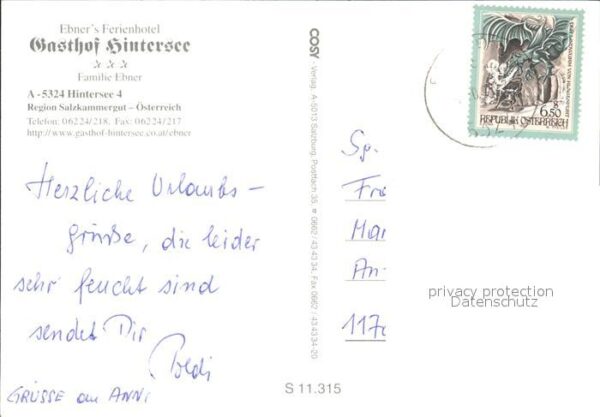 Ebner's Ferienhotel
Gasthof Hintersee
Familie Ebner
A - 5324 Hintersee 4
Region Salzkammergut – Österreich
Telefon: 06224/218, Fax: 06224/217
http://www.gasthof-hintersee.co.at/ebner
Herzliche Urlaubs-
grüße, die leider
sehr feucht sind
sendet Dir
Poldi
GRÜSSE an ANNI
COSY Verlag, A-5013 Salzburg, Postfach 35, ☎ 0662/43 43 34, Fax 0662/43 43 34-20
S 11.315
6.50
REPUBLIK ÖSTERREICH
Sp.
Fra
Mar
An-
117
privacy protection
Datenschutz